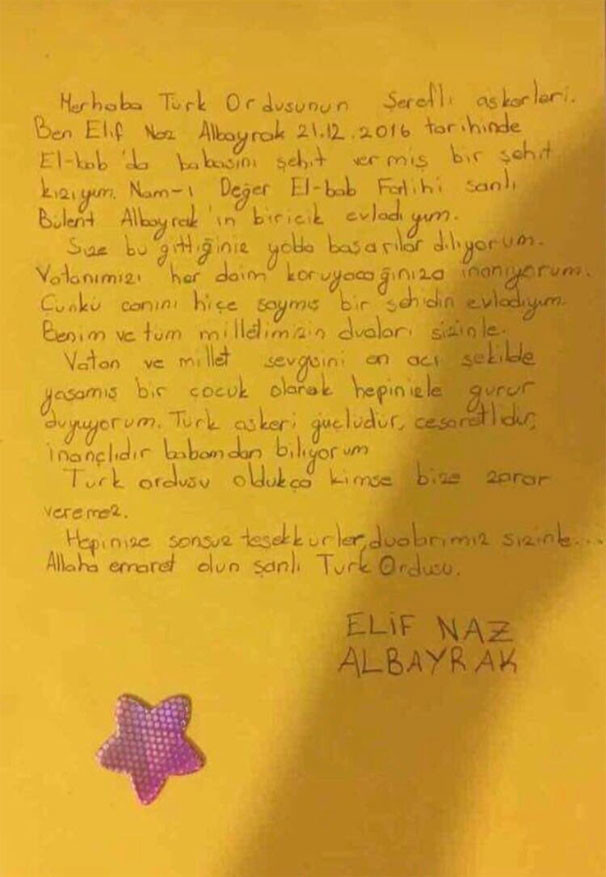 Merhaba Türk Ordusunun Şerefli askerleri.
Ben Elif Naz Albayrak 21.12.2016 tarihinde
El-bab'da babasını şehit vermiş bir şehit
kızıyım. Nam-ı Değer El-bab Fatihi şanlı
Bülent Albayrak'ın biricik evladıyım.
Size bu gittiğiniz yolda başarılar diliyorum.
Vatanımızı her daim koruyacağınıza inanıyorum.
Çünkü canını hiçe saymış bir şehidin evladıyım.
Benim ve tüm milletimizin duaları sizinle.
Vatan ve millet sevgisini en acı şekilde
yaşamış bir çocuk olarak hepinizle gurur
duyuyorum. Türk askeri güçlüdür, cesaretlidir,
inançlıdır babamdan biliyorum
Türk ordusu oldukça kimse bize zarar
veremez.
Hepinize sonsuz teşekkürler, dualarımız sizinle...
Allaha emaret olun şanlı Türk Ordusu.
ELİF NAZ
ALBAYRAK